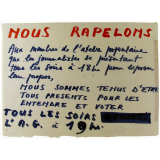 NOUS RAPELONS
Aux membres de l'atelier populaire
que les journalistes se présentant
tous les soirs à 18h pour exposer
leur propos,
NOUS SOMMES TENUS D'ETRE
TOUS PRESENTS POUR LES
ENTENDRE ET VOTER
TOUS LES SOIRS
L'A.G. à 19H.